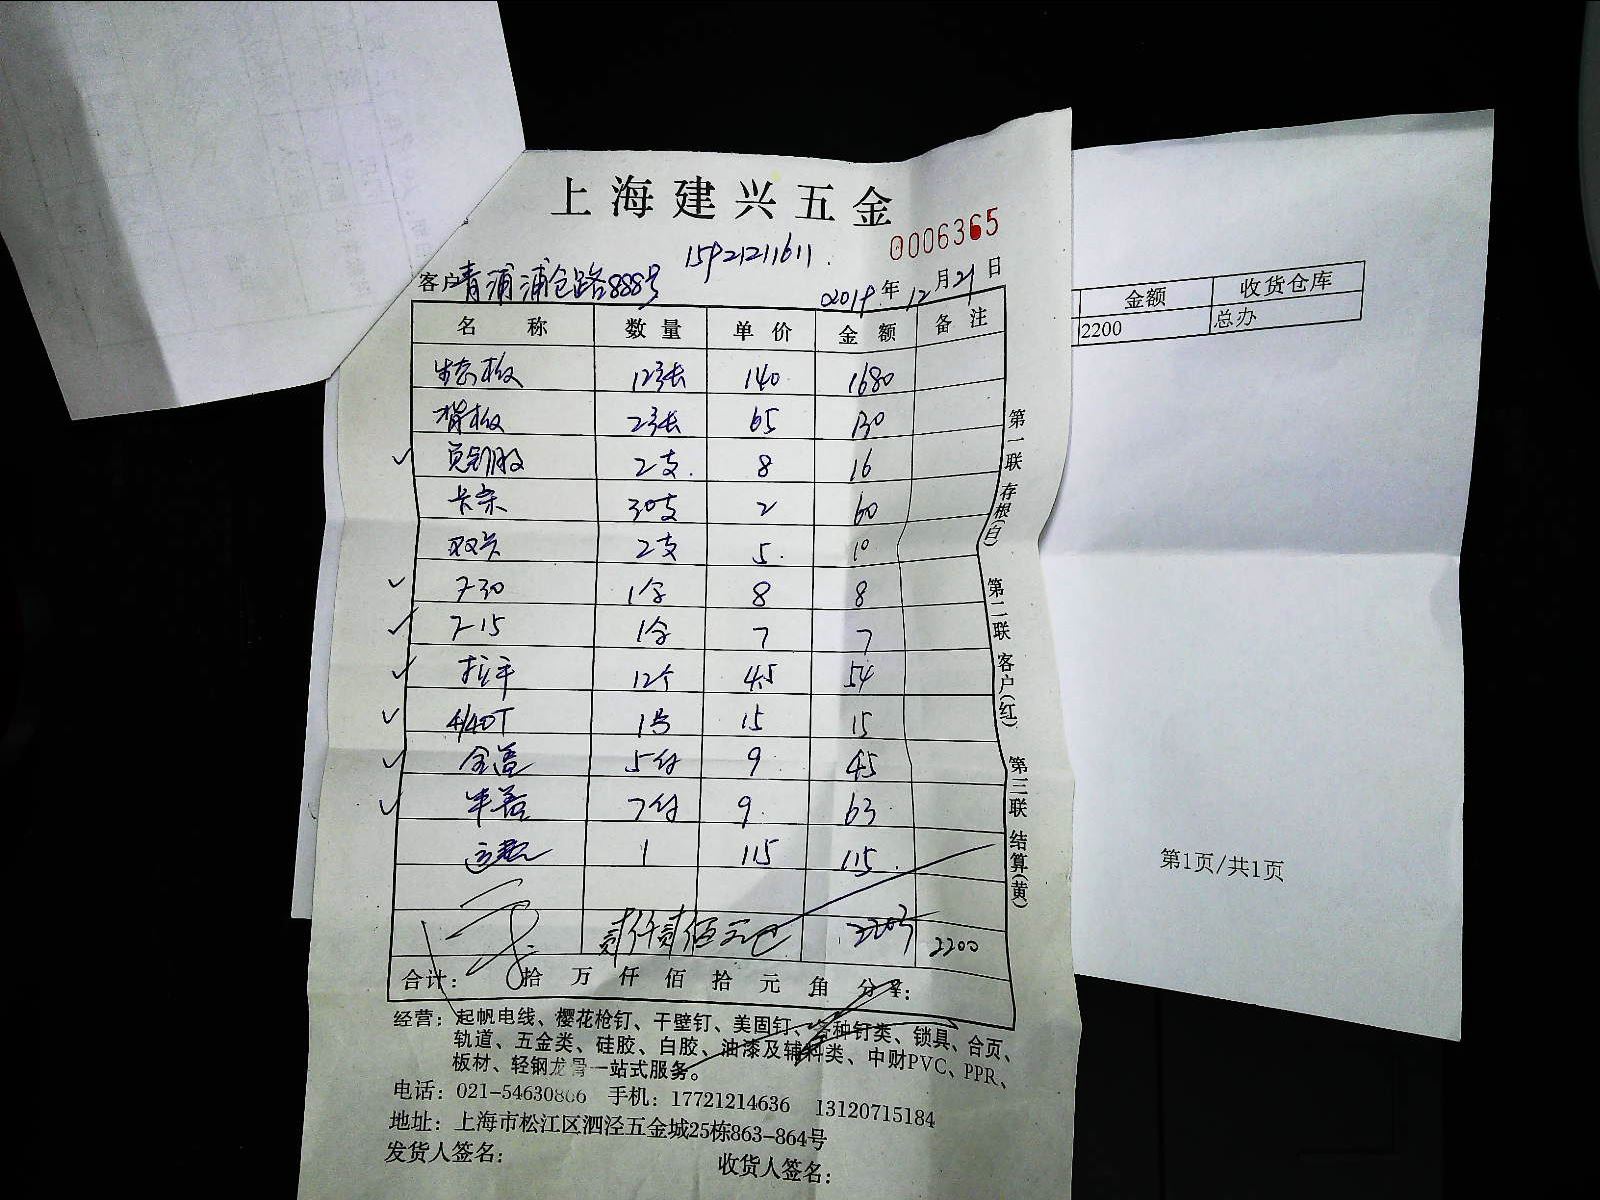 上海建兴五金
0006365
15921211611
客户 青浦浦仓路888号 2019年12月21日
名称 数量 单价 金额 备注
生态板 12张 140 1680
背板 2张 65 130
免钉胶 2支 8 16
卡条 30支 2 60
双头 2支 5 10
F30 1合 8 8
F15 1合 7 7
拉手 12个 4.5 54
4/40T 1包 15 15
全盖 5付 9 45
半盖 7付 9 63
运费 1 115 115
贰仟贰佰元正 2203 2200
合计: 拾 万 仟 佰 拾 元 角 分 ¥:
第一联 存根(白) 第二联 客户(红) 第三联 结算(黄)
经营: 起帆电线、樱花枪钉、干壁钉、美固钉、各种钉类、锁具、合页、
轨道、五金类、硅胶、白胶、油漆及辅料类、中财PVC、PPR、
板材、轻钢龙骨一站式服务。
电话: 021-54630866 手机: 17721214636 13120715184
地址: 上海市松江区泗泾五金城25栋863-864号
发货人签名: 收货人签名:
金额 收货仓库
2200 总办
第1页/共1页